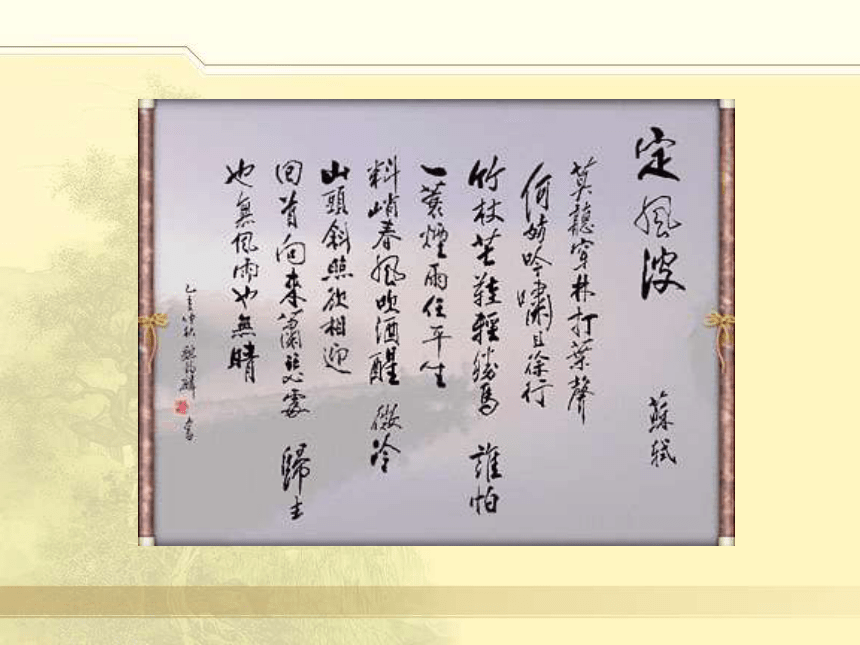 定風波
蘇軾
莫聽穿林打葉聲
何妨吟嘯且徐行
竹杖芒鞋輕勝馬 誰怕
一蓑煙雨任平生
料峭春風吹酒醒 微冷
山頭斜照卻相迎
回首向來蕭瑟處 歸去
也無風雨也無晴
乙亥仲秋 書